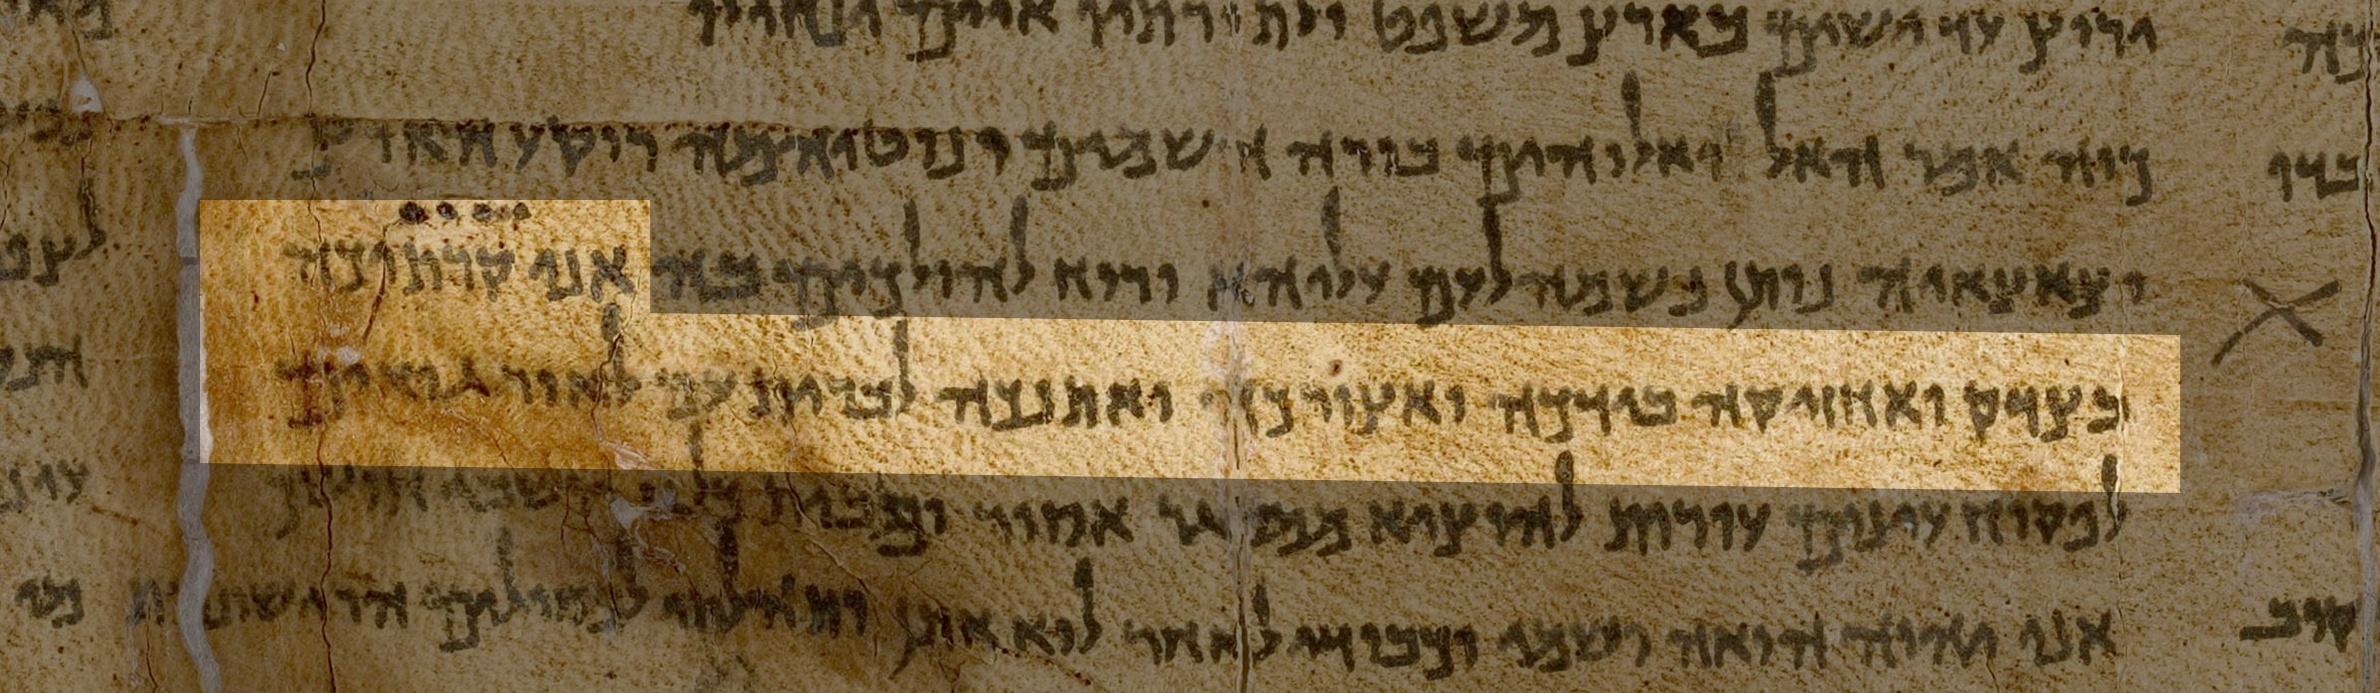 ירוץ עד ישים בארץ משפט ולתורתיו איים ינחילו
כוה אמר האל ואלוהים בורה השמים ונוטיהמה רוקע הארץ
וצאצאיה נותן נשמה לעם עליהא ורוח להולכים בה אני קרתיכה
בצדק ואחזיקה בידכה ואצורכה ואתנכה לברית עם לאור גואים
לפקוח עינים עורות להוציא ממסגר אסיר ומבית כלא יושבי חושך
אני יהוה הואה ושמי וכבודי לאחר לוא אתן ותהלתי לפסילים הרישונות